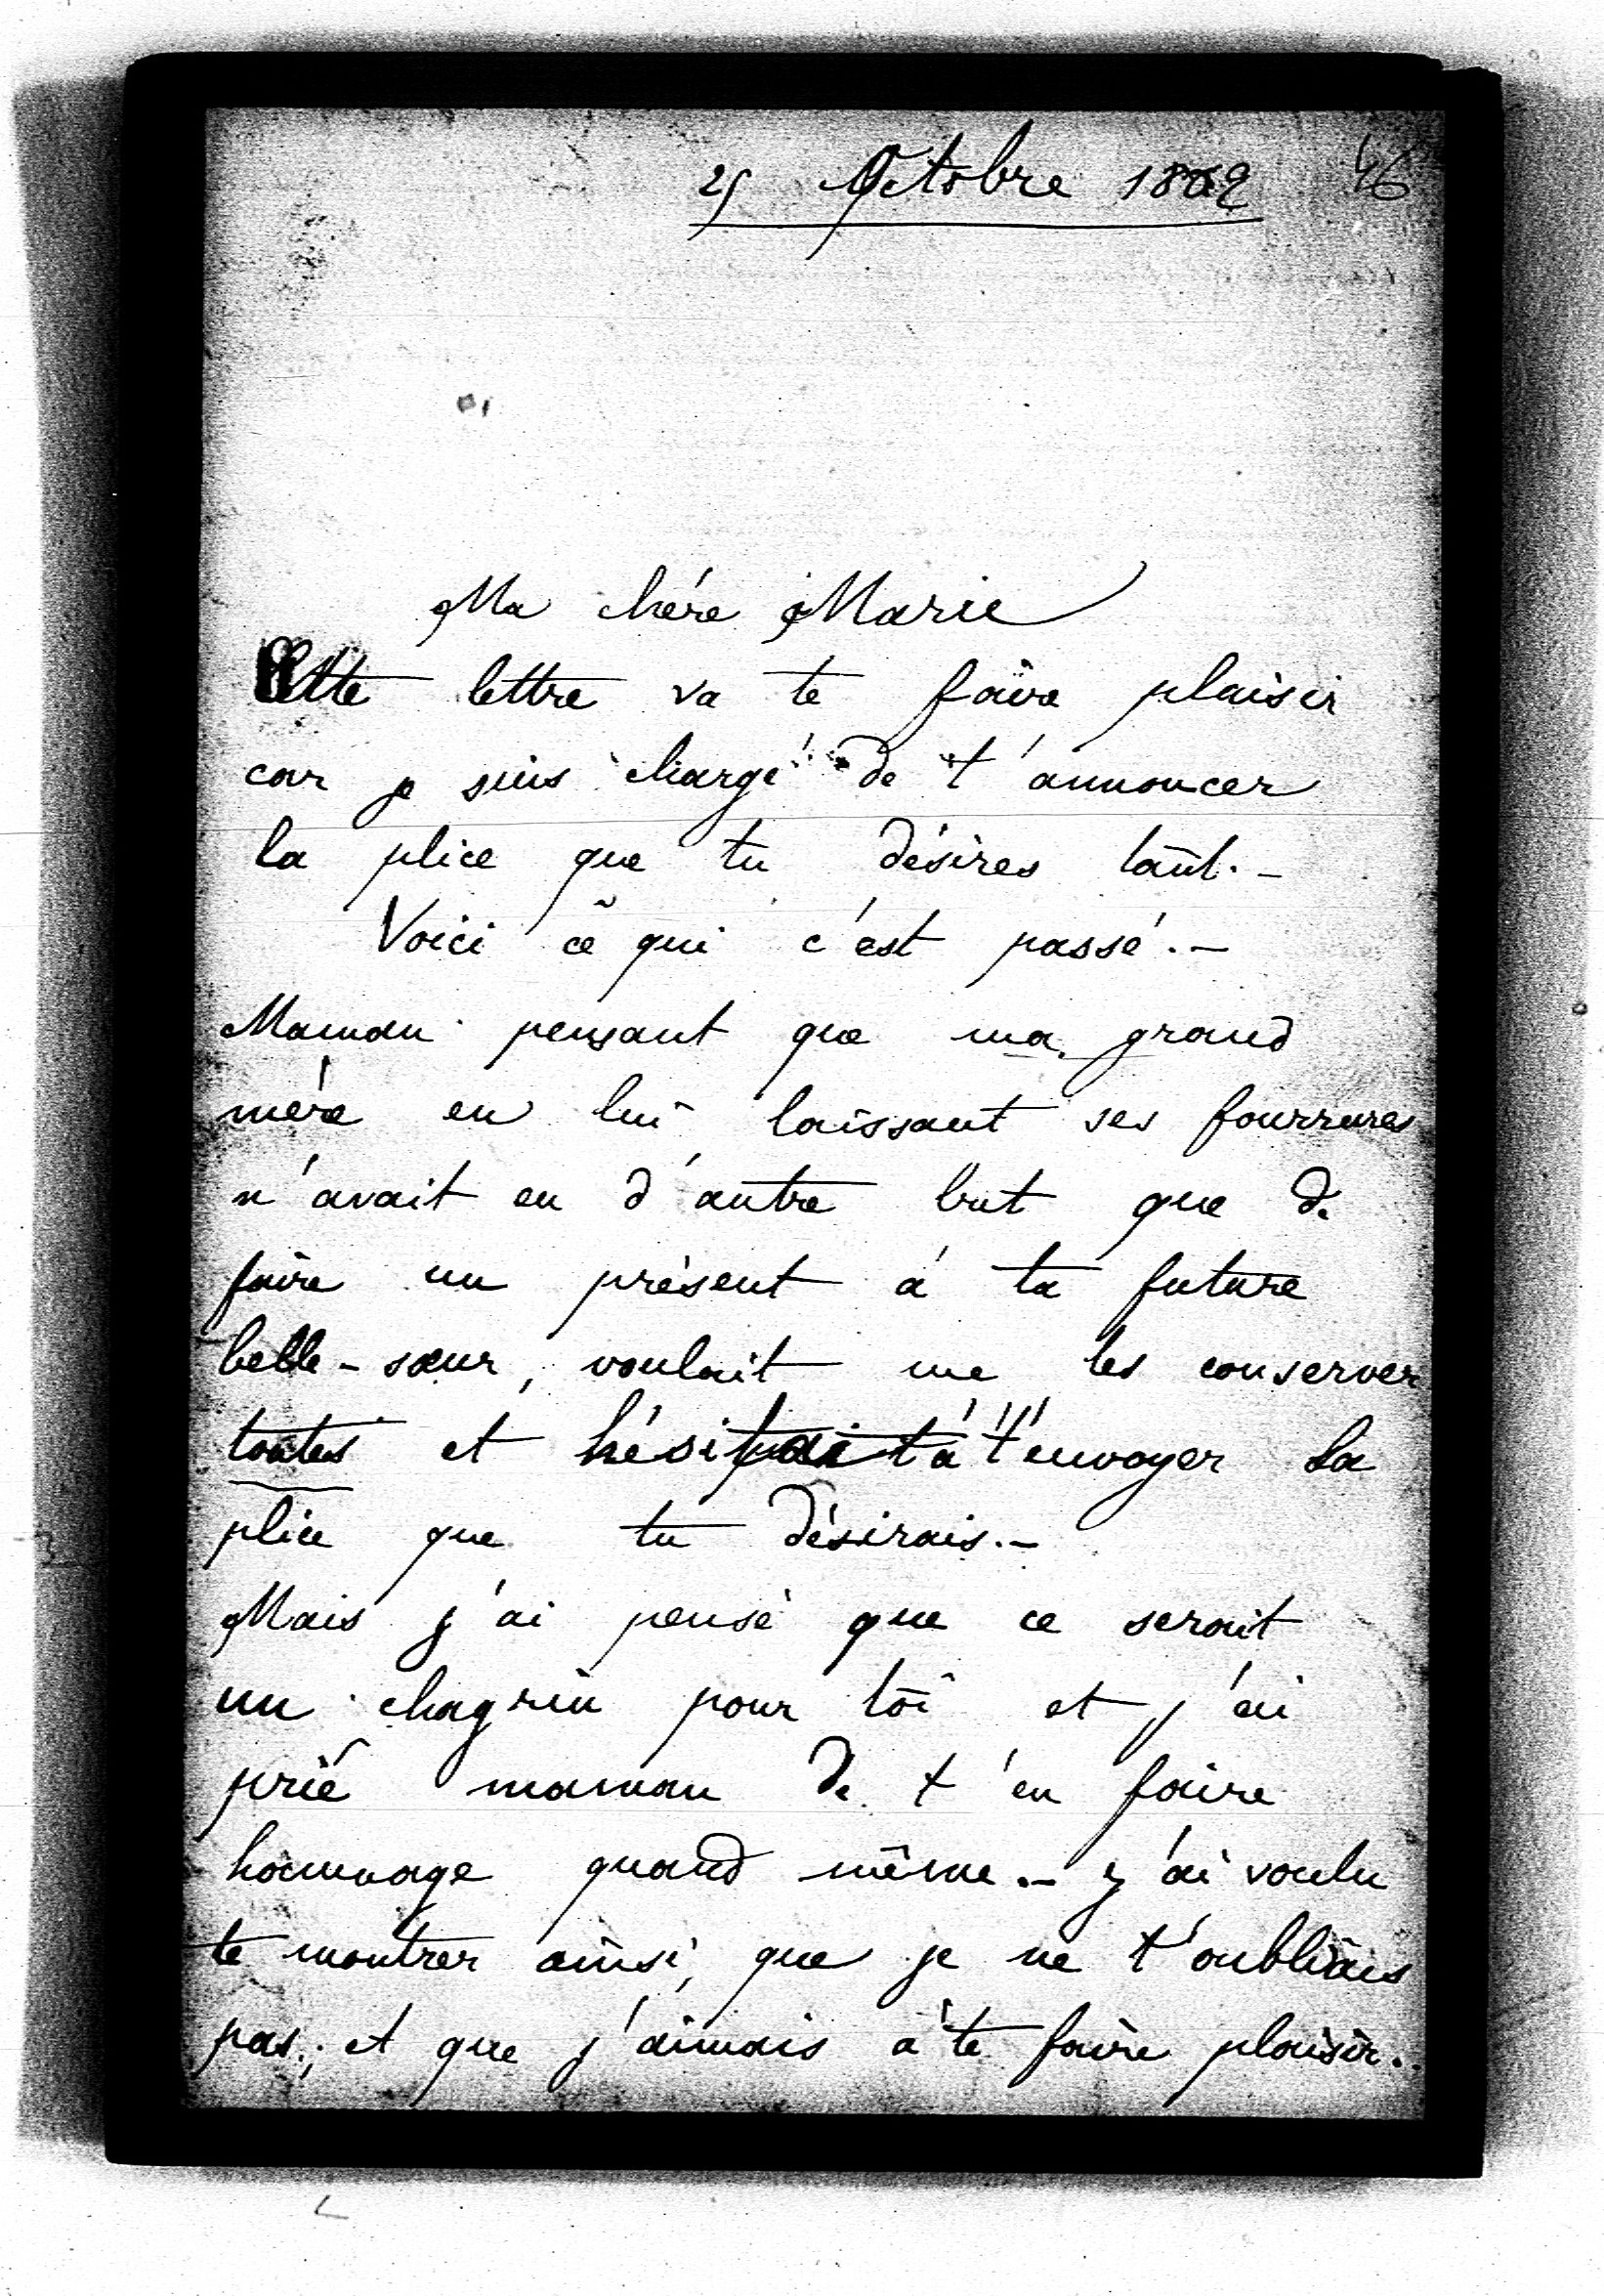 25 Octobre 1882 46
Ma chére Marie
Cette lettre va te faire plaisir
car je suis chargé de t'annoncer
la plice que tu désires tant. -
Voici ce qui c'est passé. -
Maman pensant que ma grand
mére en lui laissant ses fourrures
n'avait eu d'autre but que de
faire un présent á ta future
belle-sœur, voulait me les conserver
toutes et hésitait á t'envoyer la
plice que tu désirais. -
Mais j'ai pensé que ce serait
un chagrin pour toi et j'ai
prié maman de t'en faire
hommage quand même. - j'ai voulu
te montrer ainsi, que je ne t'oubliais
pas; et que j'aimais á te faire plaisir.